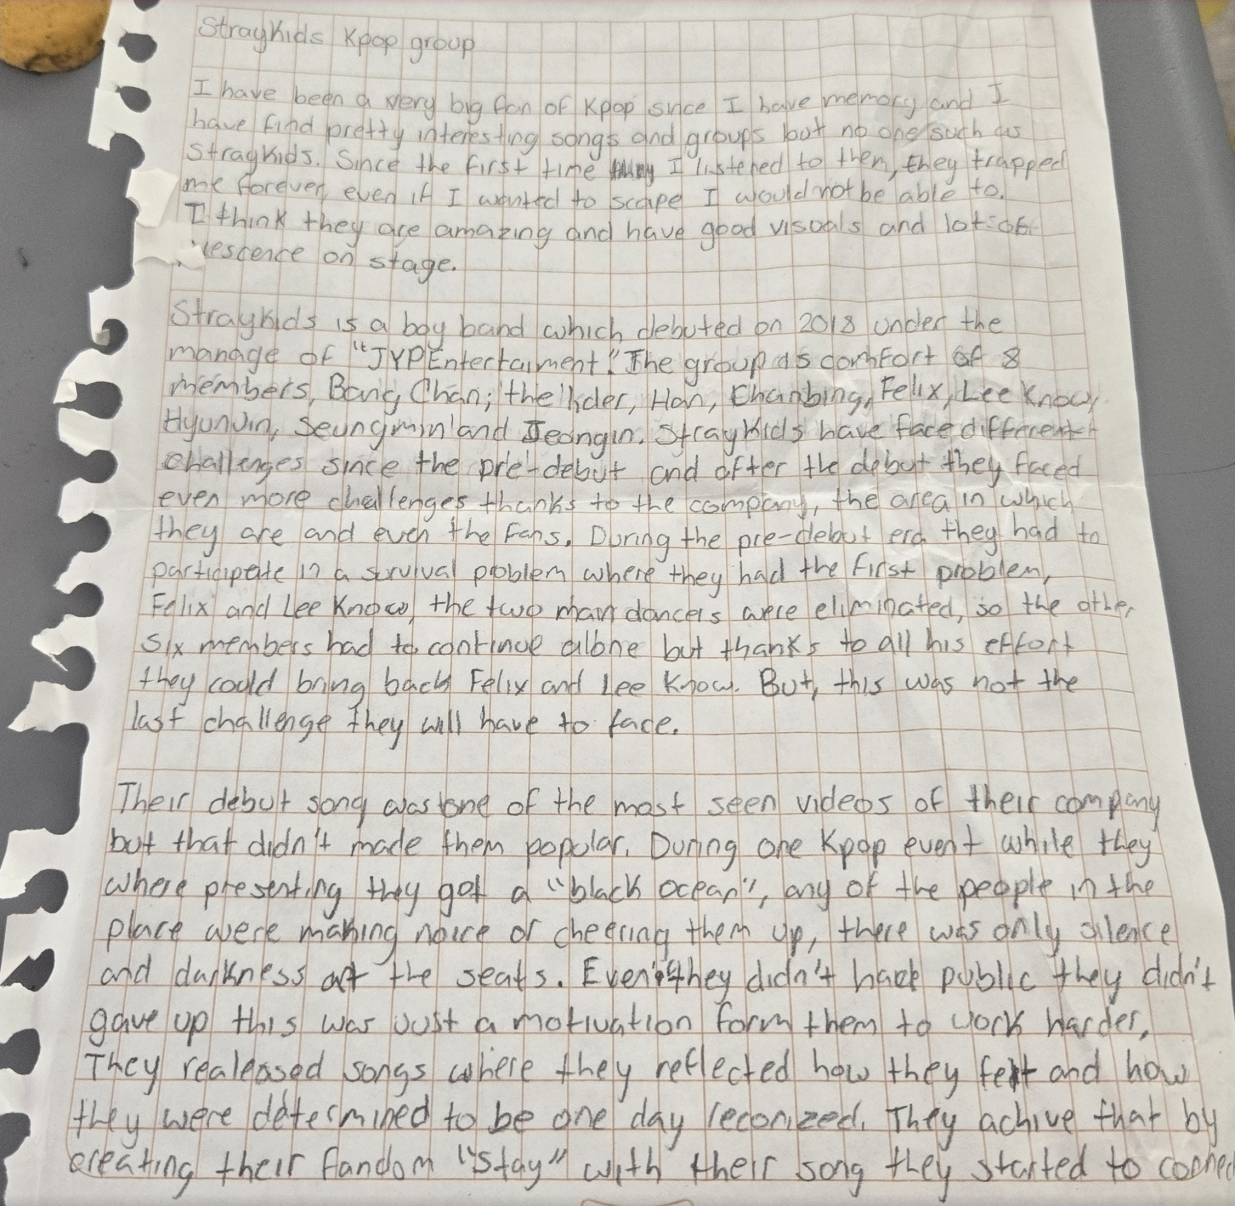 StrayKids Kpop group
I have been a very big fan of Kpop since I have memory and I
have find pretty interesting songs and groups but no one such as
StrayKids. Since the first time I listened to them, they trapped
me forever, even if I wanted to scape I would not be able to.
I think they are amazing and have good visuals and lot of
on stage.
StrayKids is a boy band which debuted on 2018 under the
manage of "JYPEntertaiment". The group is comfort of 8
members, Bang Chan; the lider, Han, Chanbing, Felix, Lee Know,
Hyunjin, Seungmin and Jeongin. StrayKids have face different
challenges since the pre-debut and after the debut they faced
even more challenges thanks to the company, the area in which
they are and even the fans. During the pre-debut era they had to
participate in a survival problem where they had the first problem,
Felix and Lee Know, the two main dancers were eliminated, so the other
six members had to continue alone but thanks to all his effort
they could bring back Felix and Lee Know. But, this was not the
last challenge they will have to face.
Their debut song was one of the most seen videos of their company
but that didn't made them popular. During one Kpop event while they
where presenting they got a "black ocean", any of the people in the
place were making noice or cheering them up, there was only silence
and darkness at the seats. Even they didn't had public they didn't
gave up this was just a motivation form them to work harder,
They realeased songs where they reflected how they felt and how
they were determined to be one day reconized. They achive that by
creating their fandom "stay" with their song they started to